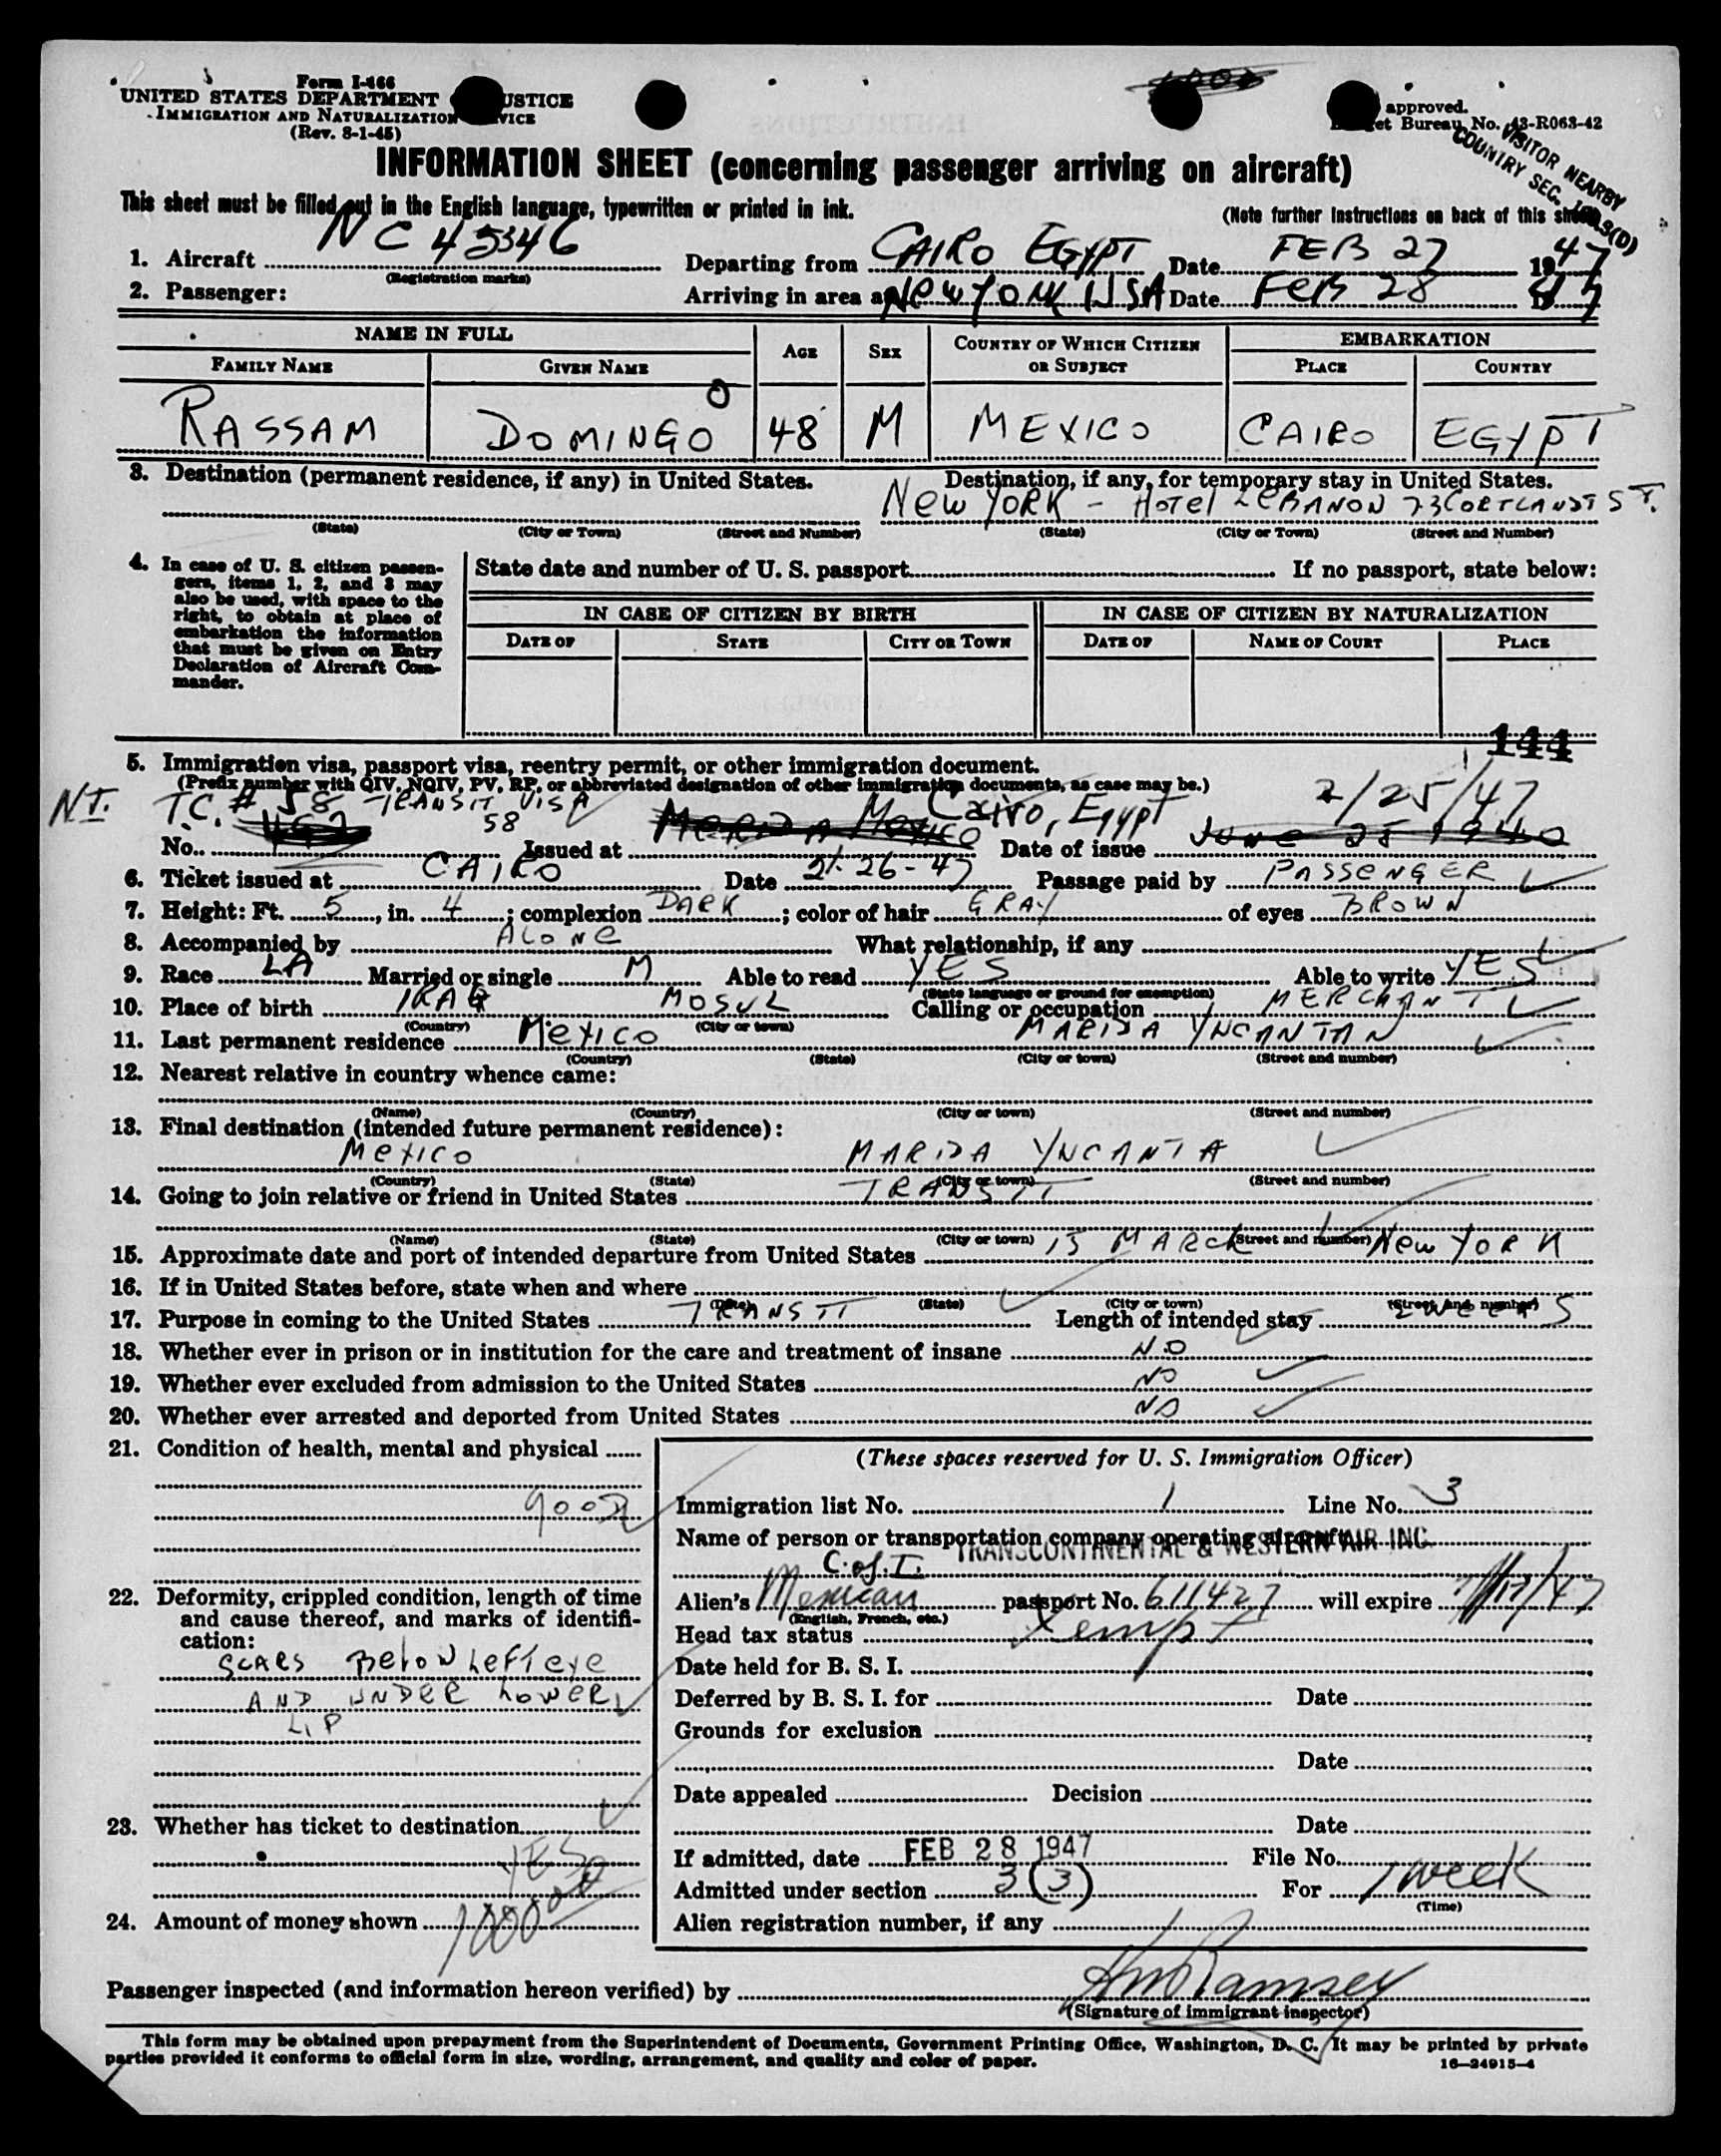 Form I-466
UNITED STATES DEPARTMENT USTICE
IMMIGRATION AND NATURALIZATION VICE
(Rev. 8-1-45)
approved.
et Bureau No. 43-R063-42
VISITOR NEARBY
COUNTRY SEC.
INFORMATION SHEET (concerning passenger arriving on aircraft)
This sheet must be filled out in the English language, typewritten or printed in ink.
(Note further instructions on back of this sheet)
1. Aircraft NC 45346 Departing from CAIRO EGYPT Date FEB 27 1947
(Registration marks)
2. Passenger: Arriving in area at NEW YORK USA Date FEB 28 47
NAME IN FULL AGE SEX COUNTRY OF WHICH CITIZEN OR SUBJECT EMBARKATION
FAMILY NAME GIVEN NAME PLACE COUNTRY
RASSAM DOMINGO 48 M MEXICO CAIRO EGYPT
3. Destination (permanent residence, if any) in United States. Destination, if any, for temporary stay in United States.
New YORK - HOTEL LEBANON 73 CORTLANDT ST.
(State) (City or Town) (Street and Number) (State) (City or Town) (Street and Number)
4. In case of U. S. citizen passengers, items 1, 2, and 3 may also be used, with space to the right, to obtain at place of embarkation the information that must be given on Entry Declaration of Aircraft Commander.
State date and number of U. S. passport If no passport, state below:
IN CASE OF CITIZEN BY BIRTH IN CASE OF CITIZEN BY NATURALIZATION
DATE OF STATE CITY OR TOWN DATE OF NAME OF COURT PLACE
144
5. Immigration visa, passport visa, reentry permit, or other immigration document.
(Prefix number with QIV, NQIV, PV, RP, or abbreviated designation of other immigration documents, as case may be.)
N.I. T.C. # 58 TRANSIT VISA 58 Cairo, Egypt 2/25/47
No. Issued at MERIDA MEXICO Date of issue June 25 1940
6. Ticket issued at CAIRO Date 2-26-47 Passage paid by PASSENGER
7. Height: Ft. 5, in. 4; complexion DARK; color of hair GRAY of eyes BROWN
8. Accompanied by ALONE What relationship, if any
9. Race LA Married or single M Able to read YES Able to write YES
(State language or ground for exemption)
10. Place of birth IRAQ MOSUL Calling or occupation MERCHANT
(Country) (City or town)
11. Last permanent residence MEXICO MARIDA YNCANTAN
(Country) (State) (City or town) (Street and number)
12. Nearest relative in country whence came:
(Name) (Country) (City or town) (Street and number)
13. Final destination (intended future permanent residence):
MEXICO MARIDA YNCANTA
(Country) (State) (City or town) (Street and number)
14. Going to join relative or friend in United States TRANSIT
(Name) (State) (City or town) (Street and number)
15. Approximate date and port of intended departure from United States 15 MARCH New YORK
16. If in United States before, state when and where
(Date) (State) (City or town) (Street and number)
17. Purpose in coming to the United States TRANSIT Length of intended stay 2 WEEKS
18. Whether ever in prison or in institution for the care and treatment of insane NO
19. Whether ever excluded from admission to the United States NO
20. Whether ever arrested and deported from United States NO
21. Condition of health, mental and physical
GOOD
22. Deformity, crippled condition, length of time and cause thereof, and marks of identification:
SCARS BELOW LEFT EYE
AND UNDER LOWER
LIP
23. Whether has ticket to destination
YES
24. Amount of money shown 1000.00
(These spaces reserved for U. S. Immigration Officer)
Immigration list No. 1 Line No. 3
Name of person or transportation company operating aircraft
TRANSCONTINENTAL & WESTERN AIR INC.
C. of I.
Alien's Mexican passport No. 611427 will expire
(English, French, etc.)
Head tax status Xempt
Date held for B. S. I.
Deferred by B. S. I. for Date
Grounds for exclusion
Date
Date appealed Decision
Date
If admitted, date FEB 28 1947 File No.
Admitted under section 3(3) For 1 week
(Time)
Alien registration number, if any
Passenger inspected (and information hereon verified) by Ramsey
(Signature of immigrant inspector)
This form may be obtained upon prepayment from the Superintendent of Documents, Government Printing Office, Washington, D. C. It may be printed by private
parties provided it conforms to official form in size, wording, arrangement, and quality and color of paper. 16—24915-4